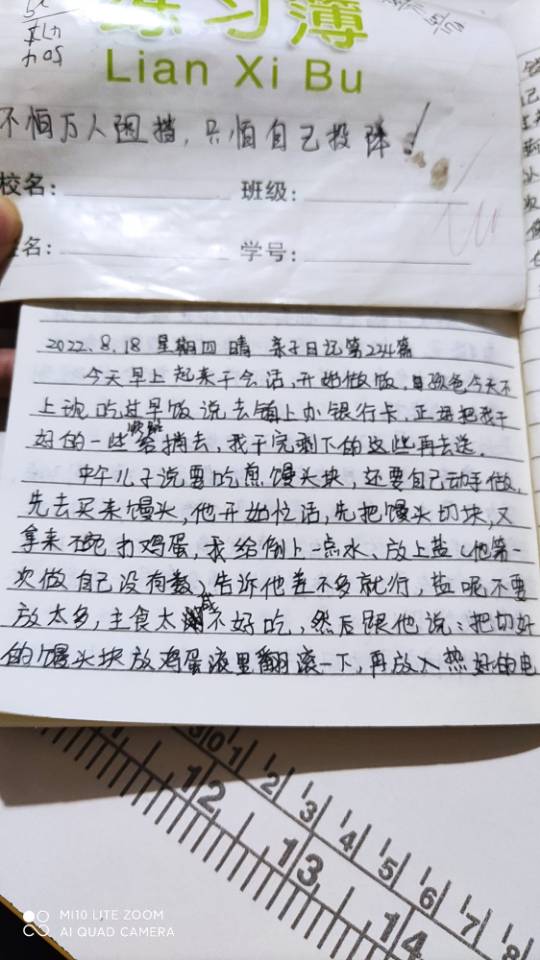 练习簿
Lian Xi Bu
不怕万人阻挡，只怕自己投降！
校名：
班级：
名：
学号：
2022.8.18 星期四 晴 亲子日记第234篇
今天早上起来干会活，开始做饭，今天不
上班吃过早饭说去镇上办银行卡，正好把我干
好的一些捎去，我干完剩下的这些再去送。
中午儿子说要吃煎馒头块，还要自己动手做，
先去买来馒头，他开始忙活，先把馒头切块，又
拿来碗打鸡蛋，我给倒上一点水、放上盐（他第一
次做自己没有数）告诉他差不多就行，盐呢不要
放太多，主食太咸不好吃，然后跟他说：把切好
的馒头块放鸡蛋液里翻滚一下，再放入热好的电
0 1 2 3 4 5 6 7 8
12 13 14
MI 10 LITE ZOOM
AI QUAD CAMERA